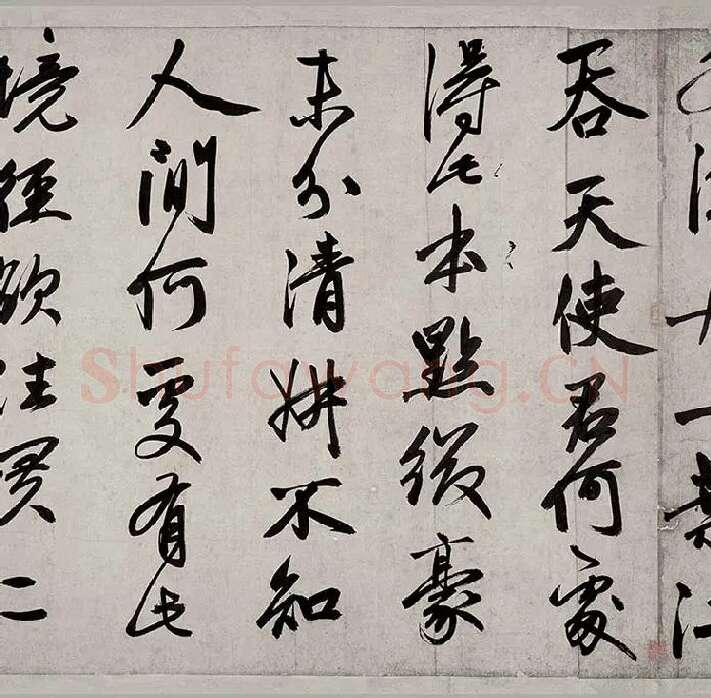 漁舟一葉江
吞天使君何處
得此本點綴豪
末分清妍不知
人間何處有此
境徑欲往買二
Shufawang.CN